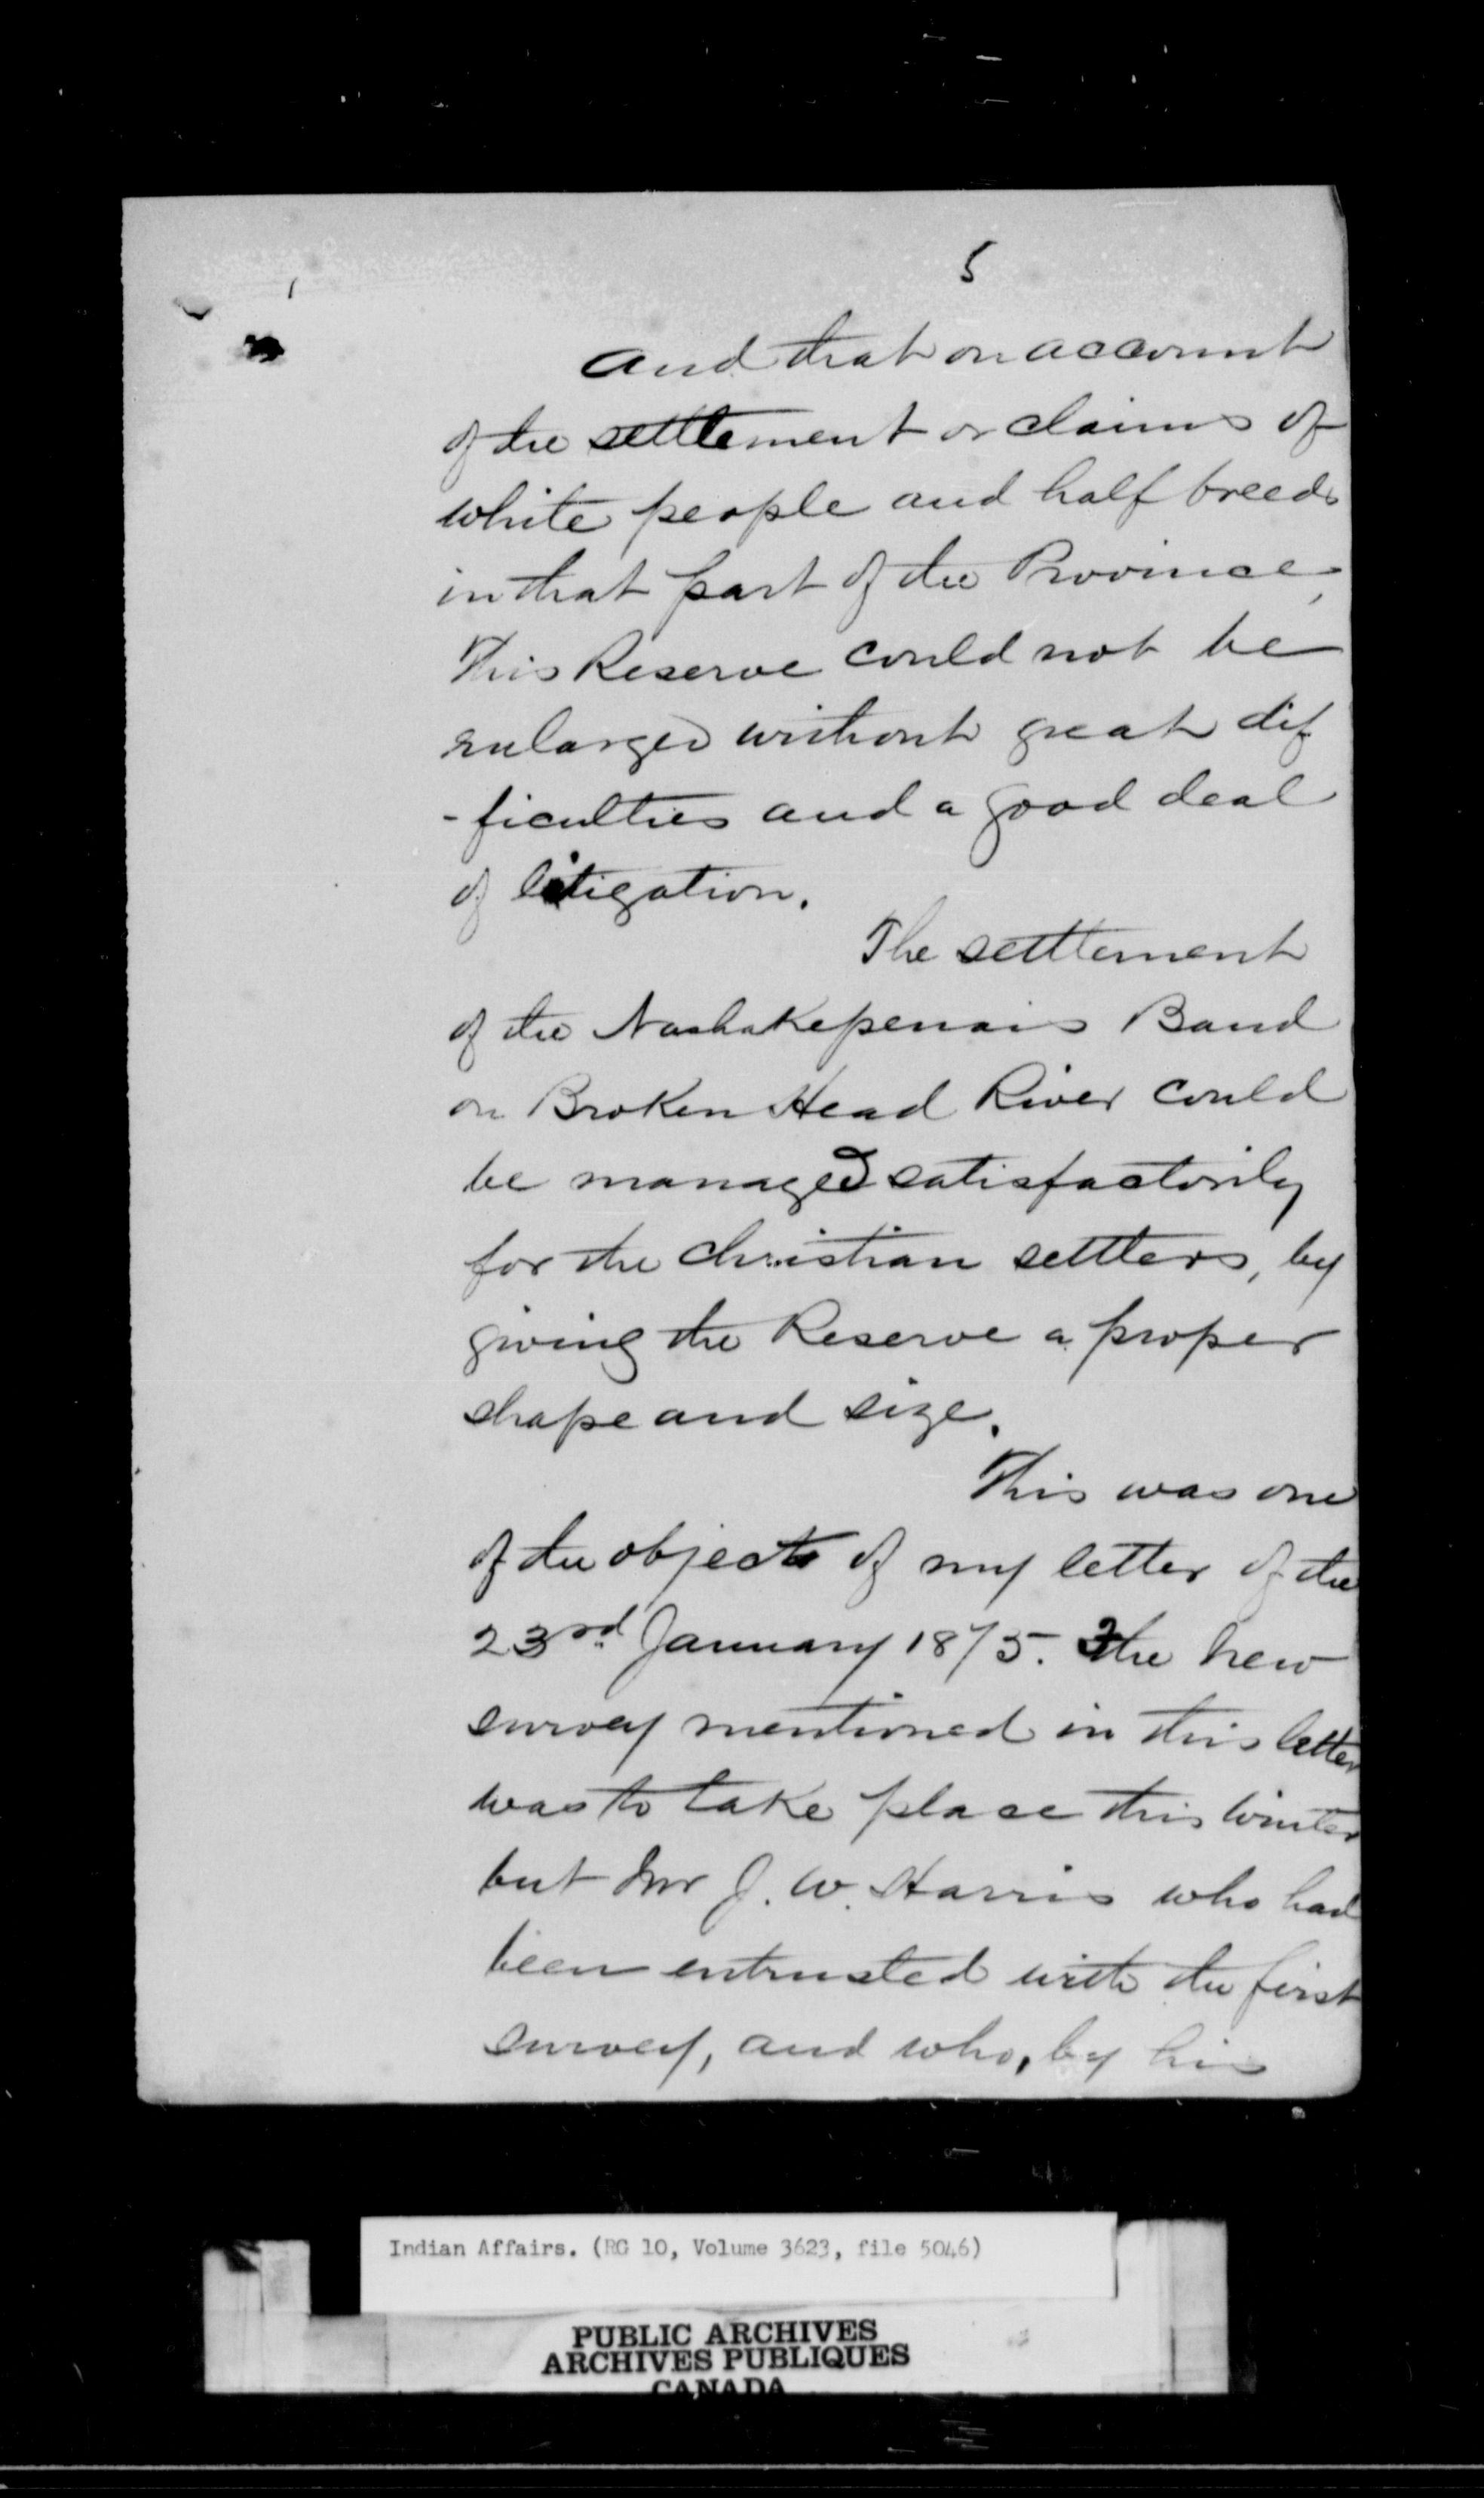 5
And that on account
of the settlement or claims of
white people and half breeds
in that part of the Province,
This Reserve could not be
enlarged without great dif
-ficulties and a good deal
of litigation.
The settlement
of the Nashakepenais Band
on Broken Head River could
be managed satisfactorily
for the Christian settlers, by
giving the Reserve a proper
shape and size.
This was one
of the objects of my letter of the
23rd January 1875. The new
survey mentioned in this letter
was to take place this winter
but Mr J. W. Harris who had
been entrusted with the first
survey, and who, by his
Indian Affairs. (RG 10, Volume 3623, file 5046)
PUBLIC ARCHIVES
ARCHIVES PUBLIQUES
CANADA